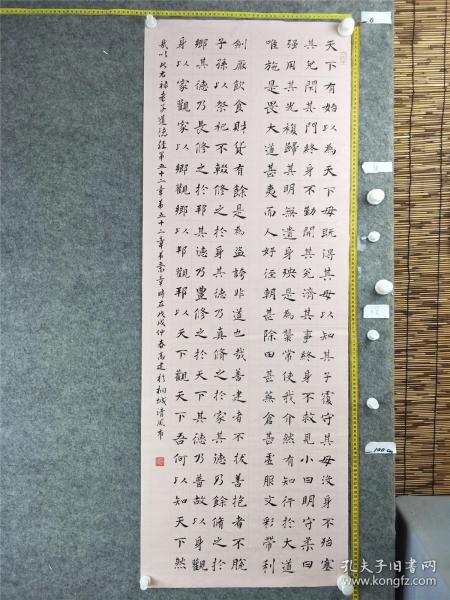 天下有始以為天下母既得其母以知其子復守其母沒身不殆塞
其兌閉其門終身不勤開其兌濟其事終身不救見小曰明守柔曰
强用其光複歸其明無遺身殃是為襲常使我介然有知行於大道
唯施是畏大道甚夷而人好徑朝甚除田甚蕪倉甚虛服文彩帶利
劍厭飲食財貨有餘是為盜誇非道也哉善建者不拔善抱者不脫
子孫以祭祀不輟修之於身其德乃真修之於家其德乃餘脩之於
鄉其德乃長修之於邦其德乃豐修之於天下其德乃普故以身觀
身以家觀家以鄉觀鄉以邦觀邦以天下觀天下吾何以知天下然
哉以此右祿老子道德經第五十二章第五十三章第章時在戊戌仲春高建於桐城清風市
0
100cm
孔夫子旧书网
kongfz.com